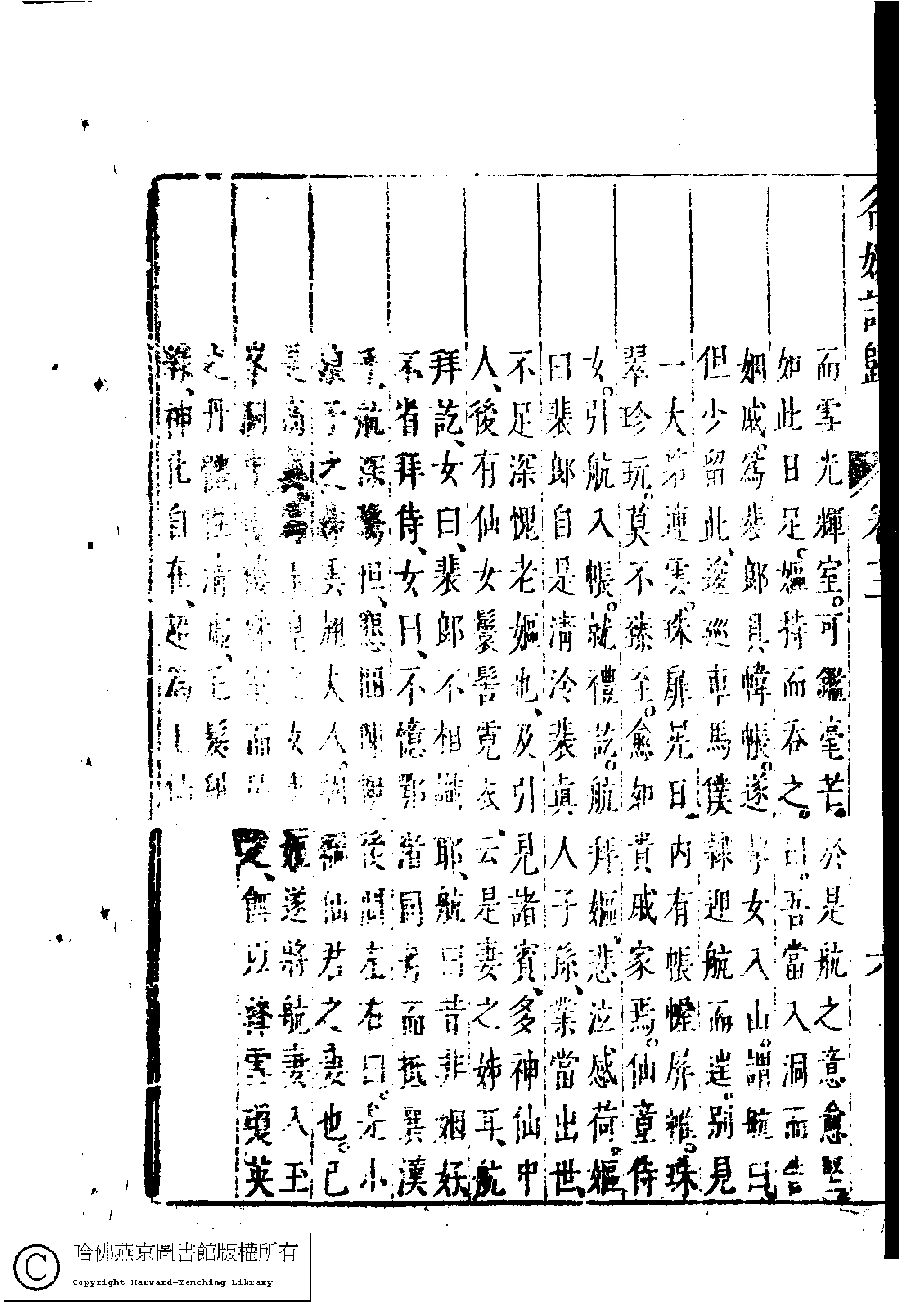 而雪光輝室。可鑑毫芒。於是航之意愈堅
如此日足。嫗持而吞之。曰。吾當入洞而告
姻戚。爲裴郎具幃帳。遂挈女入山。謂航曰。
但少留此。逡巡車馬僕隸迎航而迬。別見
一大第連雲。珠扉晃日。內有帳幄屏幃。珠
翠珍玩。莫不臻至。愈如貴戚家焉。仙童侍
女。引航入帳。就禮訖。航拜嫗。悲泣感荷。嫗
曰裴郎自是清冷裴眞人子孫、業當出世、
不足深愧老嫗也、及引見諸賓、多神仙中
人、後有仙女鬟髻霓衣、云是妻之姊耳、航
拜訖、女曰、裴郎不相識耶、航曰昔非姻好、
不省拜侍、女曰、不憶鄂渚同舟而抵襄漢
乎、航深驚怛、懇悃陳謝、後問左右曰。是小
娘子之姊雲翹夫人。劉綱仙君之妻也。已
是高眞 玉皇之女吏 嫗遂將航妻入玉
峯洞 樓 室而 之、餌以絳雪瓊英
之丹體性清虛、毛髮紺
綠、神化自在、超爲上仙
卷三
六
哈佛燕京圖書館版權所有
Copyright Harvard-Yenching Library